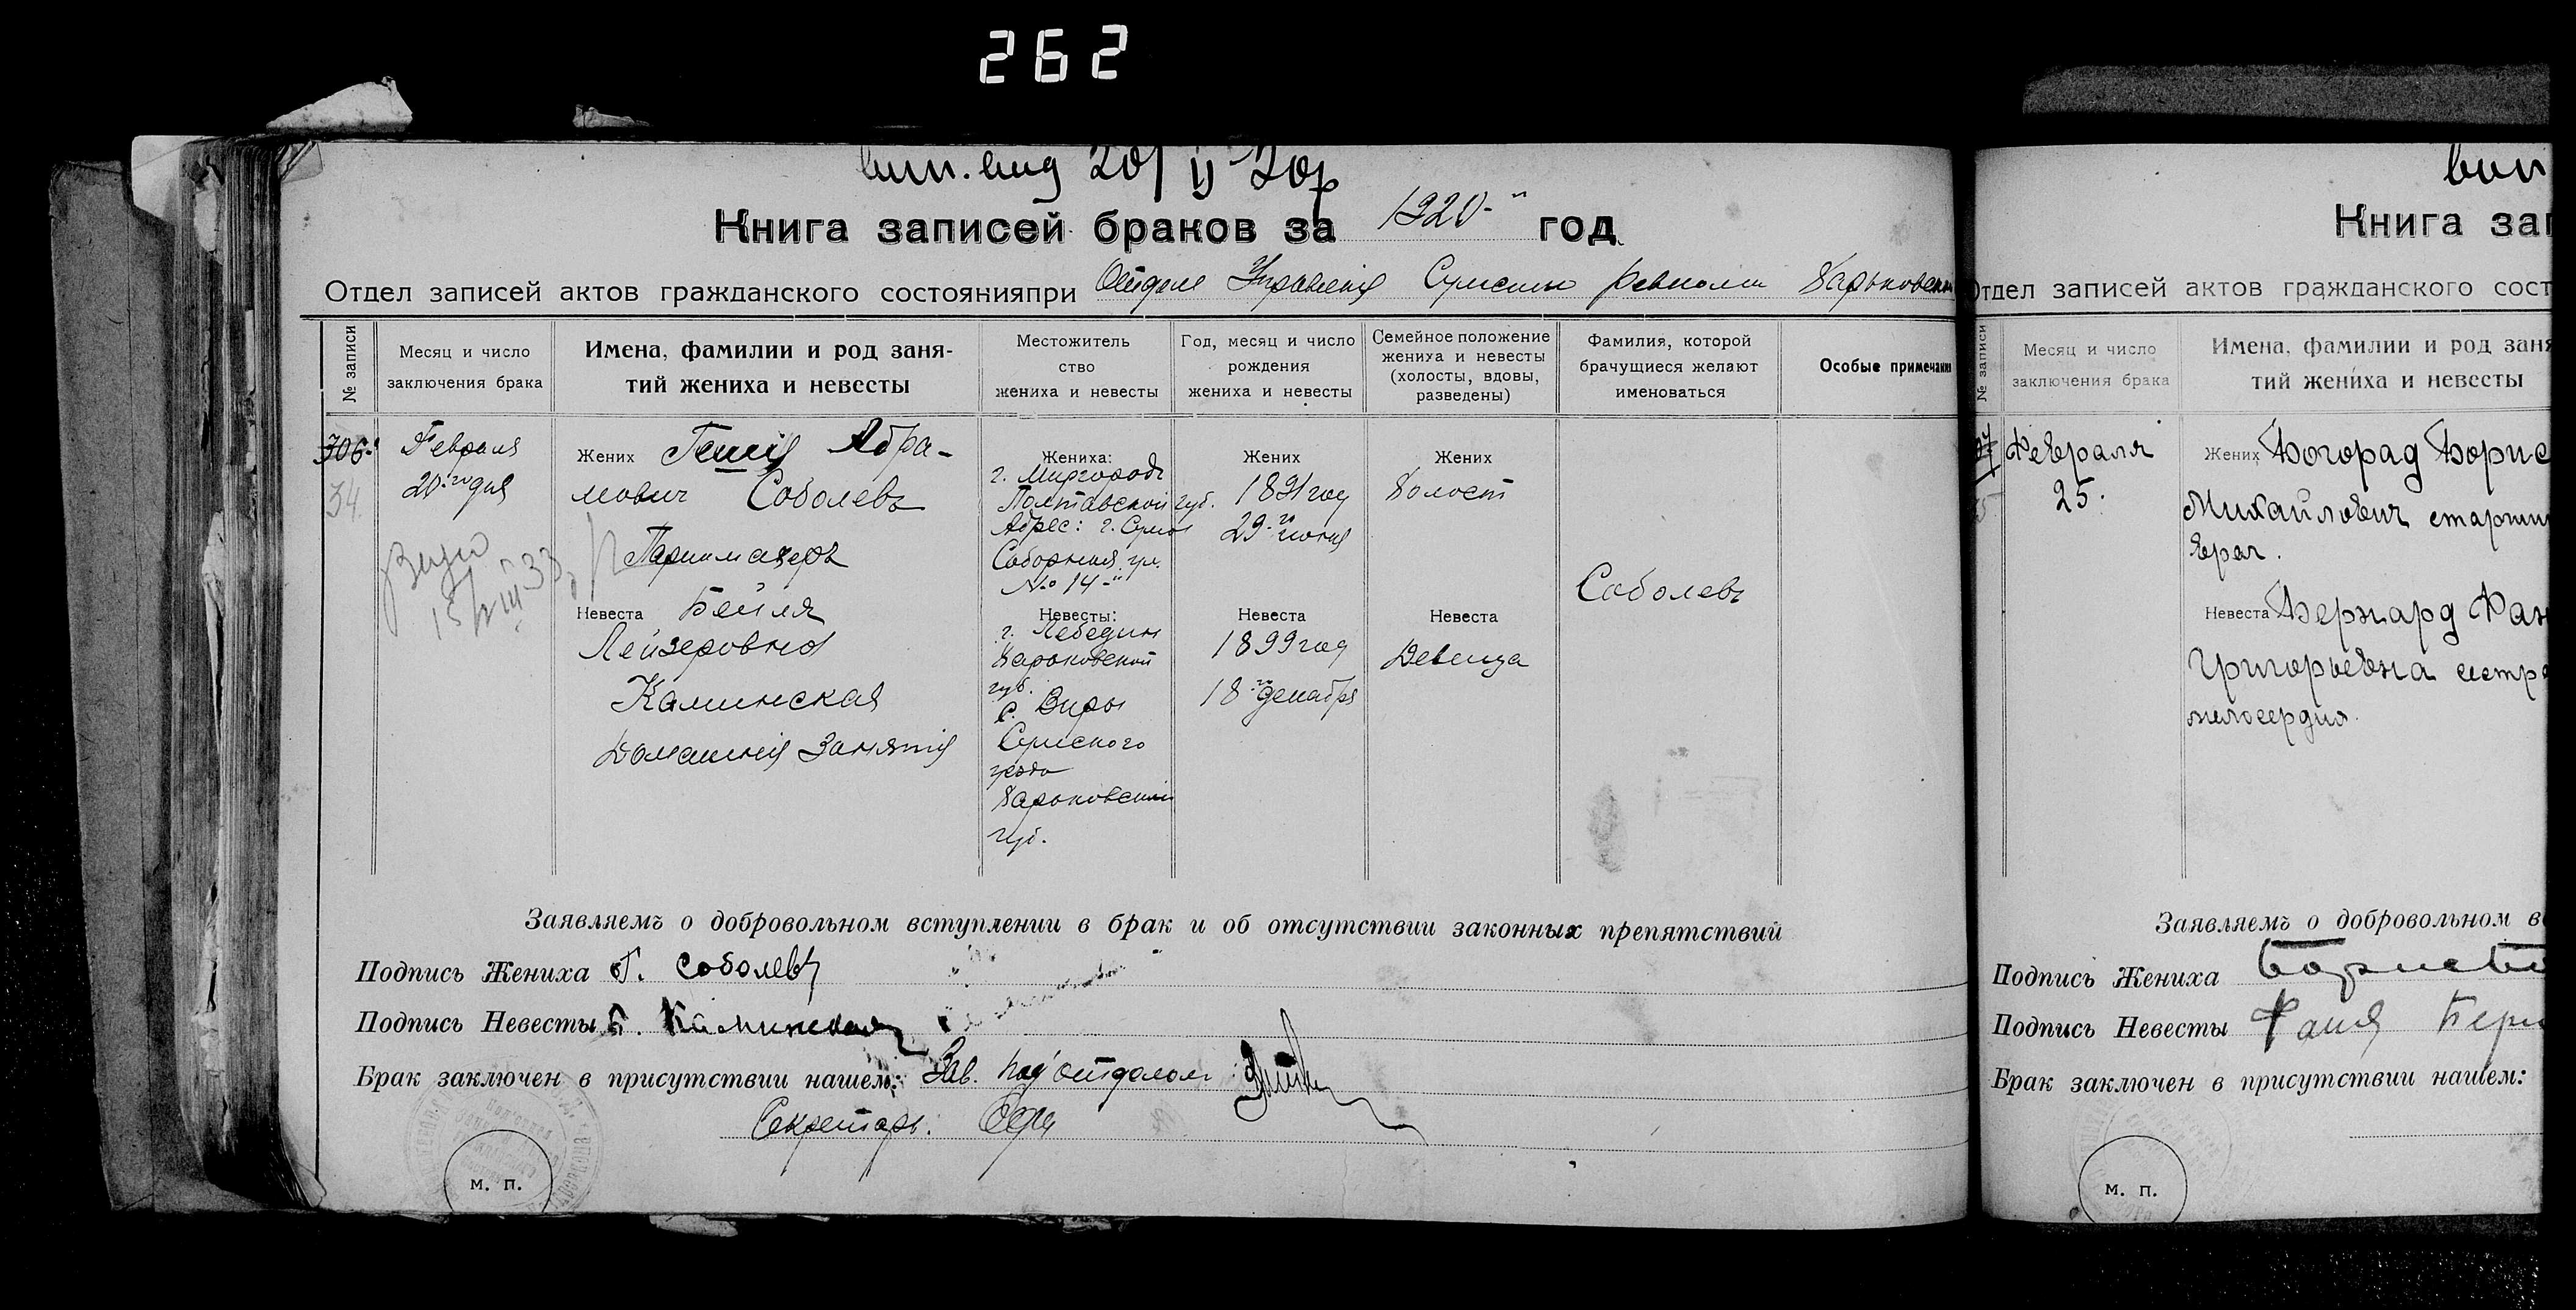 262
вып. вид 20/II 20р
Книга записей браков за 1920-го год
Отдел записей актов гражданского состоянияпри Отделе Управления Сумского Ревкома Харьковской
№ записи
Месяц и число
заключения брака
Имена, фамилии и род заня-
тий жениха и невесты
Местожитель
ство
жениха и невесты
Год, месяц и число
рождения
жениха и невесты
Семейное положение
жениха и невесты
(холосты, вдовы,
разведены)
Фамилия, которой
брачущиеся желают
именоваться
Особые примечания
306
34.
Февраля
20-го дня
Жених Гешія Абра-
мович Соболевъ
Парикмахеръ
Невеста Бейля
Лейзеровна
Каминская
Домашнія Занятія
Жениха:
г. Миргородъ
Полтавской губ.
Адрес: г. Сумы
Соборная ул.
№ 14-й
Невесты:
г. Лебедин
Харьковской
губ.
с. Виры
Сумского
уезда
Харьковской
губ.
Жених
1891 год
29-го июня
Невеста
1899 год
18-го декабря
Жених
Холост
Невеста
Девица
Соболевъ
Заявляемъ о добровольном вступлении в брак и об отсутствии законных препятствий
Подпись Жениха Г. Соболевъ
Подпись Невесты Б. Каминская
Брак заключен в присутствии нашем: Зав. Под'отделом
Секретарь:
м. п.
вып
Книга зап
Отдел записей актов гражданского сост
№ записи
Месяц и число
заключения брака
Имена, фамилии и род заня
тий жениха и невесты
Февраля
25.
Жених Богорад Борис
Михайлович старший
врач.
Невеста Бернард Фан
Григорьевна сестра
милосердия.
Заявляемъ о добровольном в
Подпись Жениха Борис Бо
Подпись Невесты Фаня Берн
Брак заключен в присутствии нашем:
м. п.